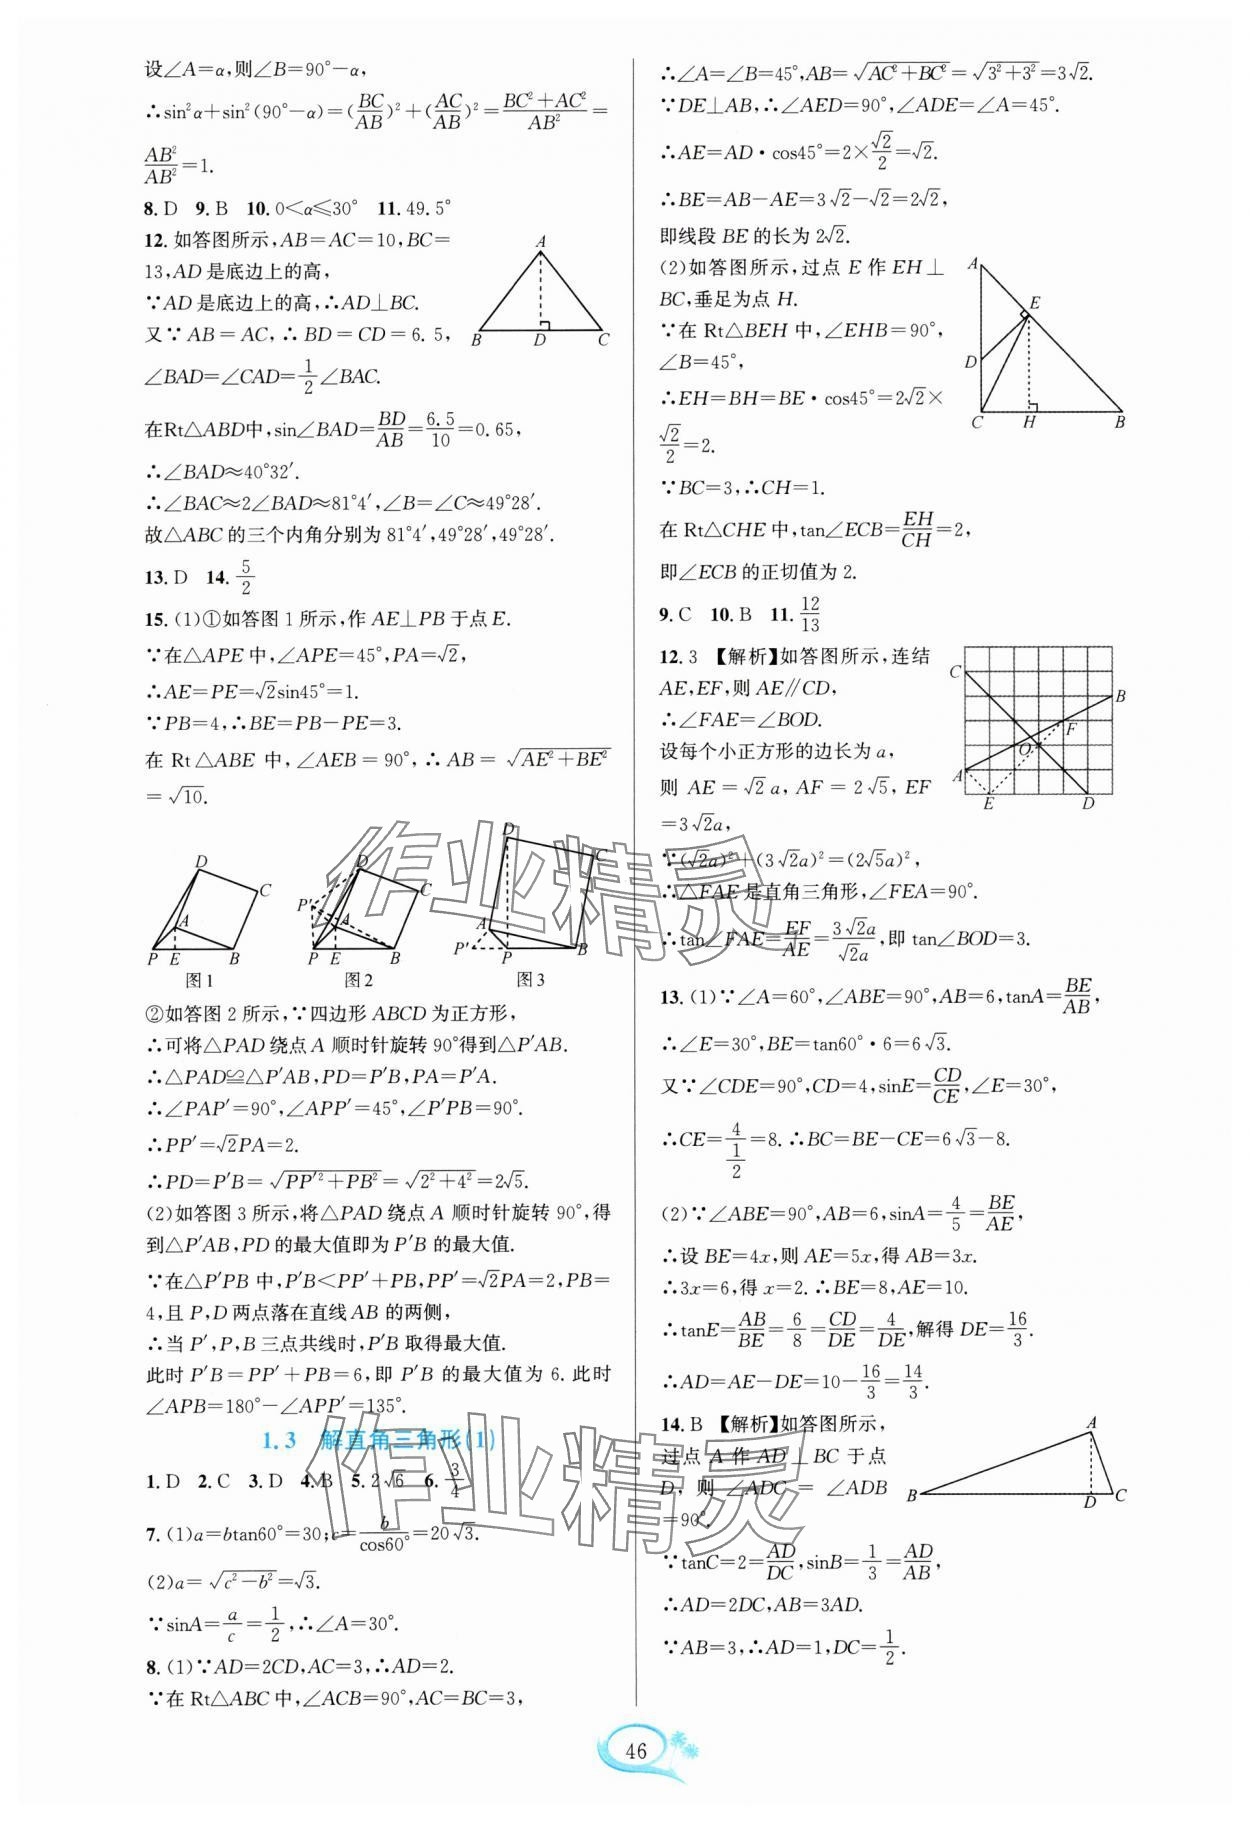 设∠A=α,则∠B=90°-α,
∴sin²α+sin²(90°-α)=(BC/AB)²+(AC/AB)²=(BC²+AC²)/AB²=
AB²/AB²=1.
8. D 9. B 10. 0<α≤30° 11. 49.5°
12. 如答图所示,AB=AC=10,BC=
13,AD是底边上的高,
∵AD是底边上的高,∴AD⊥BC.
又∵AB=AC,∴BD=CD=6.5,
∠BAD=∠CAD=1/2∠BAC.
A
B D C
在Rt△ABD中,sin∠BAD=BD/AB=6.5/10=0.65,
∴∠BAD≈40°32′.
∴∠BAC≈2∠BAD≈81°4′,∠B=∠C≈49°28′.
故△ABC的三个内角分别为81°4′,49°28′,49°28′.
13. D 14. 5/2
15. (1)①如答图1所示,作AE⊥PB于点E.
∵在△APE中,∠APE=45°,PA=√2,
∴AE=PE=√2sin45°=1.
∵PB=4,∴BE=PB-PE=3.
在Rt△ABE中,∠AEB=90°,∴AB=√(AE²+BE²)
=√10.
D C A P E B
图1
D C P′ A P E B
图2
D C A P′ P B
图3
②如答图2所示,∵四边形ABCD为正方形,
∴可将△PAD绕点A顺时针旋转90°得到△P′AB.
∴△PAD≌△P′AB,PD=P′B,PA=P′A.
∴∠PAP′=90°,∠APP′=45°,∠P′PB=90°.
∴PP′=√2PA=2.
∴PD=P′B=√(PP′²+PB²)=√(2²+4²)=2√5.
(2)如答图3所示,将△PAD绕点A顺时针旋转90°,得
到△P′AB,PD的最大值即为P′B的最大值.
∵在△P′PB中,P′B<PP′+PB,PP′=√2PA=2,PB=
4,且P,D两点落在直线AB的两侧,
∴当P′,P,B三点共线时,P′B取得最大值.
此时P′B=PP′+PB=6,即P′B的最大值为6.此时
∠APB=180°-∠APP′=135°.
1.3 解直角三角形(1)
1. D 2. C 3. D 4. B 5. 2√6 6. 3/4
7. (1)a=btan60°=30;c=b/cos60°=20√3.
(2)a=√(c²-b²)=√3.
∵sinA=a/c=1/2,∴∠A=30°.
8. (1)∵AD=2CD,AC=3,∴AD=2.
∵在Rt△ABC中,∠ACB=90°,AC=BC=3,
∴∠A=∠B=45°,AB=√(AC²+BC²)=√(3²+3²)=3√2.
∵DE⊥AB,∴∠AED=90°,∠ADE=∠A=45°.
∴AE=AD·cos45°=2×√2/2=√2.
∴BE=AB-AE=3√2-√2=2√2,
即线段BE的长为2√2.
(2)如答图所示,过点E作EH⊥
BC,垂足为点H.
∵在Rt△BEH中,∠EHB=90°,
∠B=45°,
∴EH=BH=BE·cos45°=2√2×
√2/2=2.
A E D C H B
∵BC=3,∴CH=1.
在Rt△CHE中,tan∠ECB=EH/CH=2,
即∠ECB的正切值为2.
9. C 10. B 11. 12/13
12. 3 【解析】如答图所示,连结
AE,EF,则AE∥CD,
∴∠FAE=∠BOD.
设每个小正方形的边长为a,
则AE=√2a,AF=2√5,EF
=3√2a,
C B F O A E D
∵(√2a)²+(3√2a)²=(2√5a)²,
∴△FAE是直角三角形,∠FEA=90°.
∴tan∠FAE=EF/AE=3√2a/√2a,即tan∠BOD=3.
13. (1)∵∠A=60°,∠ABE=90°,AB=6,tanA=BE/AB,
∴∠E=30°,BE=tan60°·6=6√3.
又∵∠CDE=90°,CD=4,sinE=CD/CE,∠E=30°,
∴CE=4/(1/2)=8.∴BC=BE-CE=6√3-8.
(2)∵∠ABE=90°,AB=6,sinA=4/5=BE/AE,
∴设BE=4x,则AE=5x,得AB=3x.
∴3x=6,得x=2.∴BE=8,AE=10.
∴tanE=AB/BE=6/8=CD/DE=4/DE,解得DE=16/3.
∴AD=AE-DE=10-16/3=14/3.
14. B 【解析】如答图所示,
过点A作AD⊥BC于点
D,则∠ADC=∠ADB
=90°.
A
B D C
∵tanC=2=AD/DC,sinB=1/3=AD/AB,
∴AD=2DC,AB=3AD.
∵AB=3,∴AD=1,DC=1/2.
46
作业精灵
作业精灵